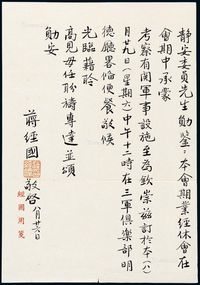 靜安委員先生勛鑒：本會期業經休會在
會期中承蒙
考察有關軍事設施至為欽崇茲訂於本（八）
月廿九日（星期六）中午十二時在三軍俱樂部明
德廳畧備便餐敬候
光臨藉聆
高見毋任盼禱專達並頌
勛安
蔣經國敬啓 八月廿六日
經國用箋